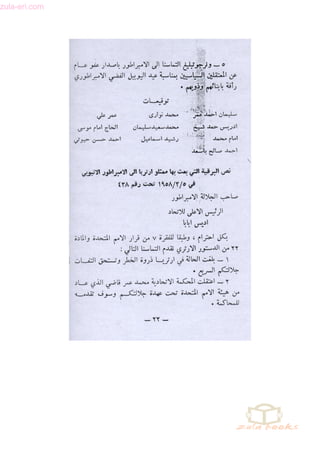 zula-eri.com
٥ — ونرجو تبليغ التماسنا الى الامبراطور باصدار عفو عـام
عن المعتقلين السياسيين بمناسبة عيد اليوبيل الفضي الامبراطوري
رأفة بابنائهم وذويهم .
توقيعـــات
سليمان احمد عمر محمد نوارى عمر علي
ادريس حمد شيخ محمد سعيد سليمان الحاج امام موسى
امام محمد رشيد اسماعيل احمد حسن حيوتي
احمد صالح باسعد
نص البرقية التي بعث بها ممثلو ارتريا الى الامبراطور الاثيوبي
في ١٩٥٨/٣/٥ تحت رقم ٤٣٨
صاحب الجلالة الامبراطور
الرئيس الاعلى للاتحاد
اديس ابابا
بكل احترام ، وطبقا للفقرة ٧ من قرار الامم المتحدة والمادة
٢٢ من الدستور الارتري نقدم التماسنا التالي :
١ — بلغت الحالة في ارتريـا ذروة الخطر وتستحق التفـات
جلالتكم السريع .
٢ — اعتقلت المحكمة الاتحادية محمد عمر قاضي الذي عـاد
من هيئة الامم المتحدة تحت عهدة جلالتكـم وسوف تقدمـه
للمحاكمة .
— ٢٢ —
zula books